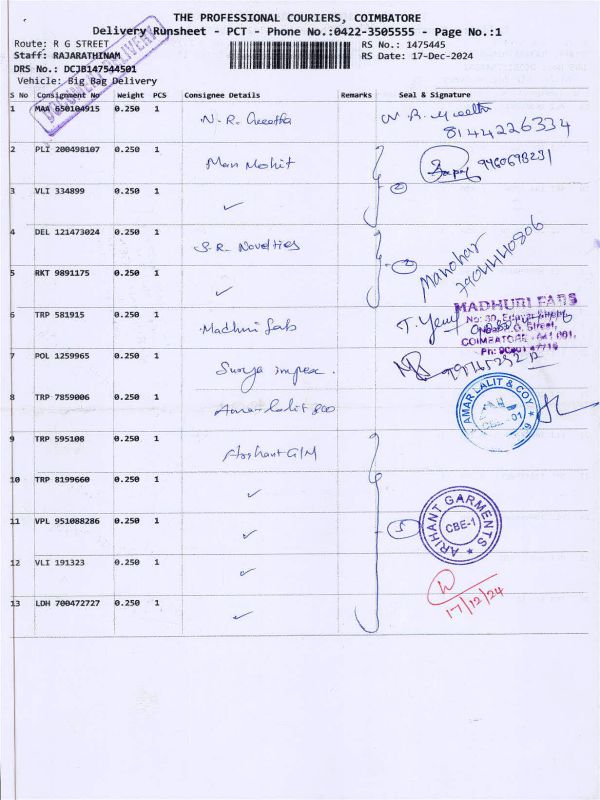 THE PROFESSIONAL COURIERS, COIMBATORE
Delivery Runsheet - PCT - Phone No.:0422-3505555 - Page No.:1
Route: R G STREET
RS No.: 1475445
Staff: RAJARATHINAM
RS Date: 17-Dec-2024
DRS No.: DCJB147544501
Vehicle: Big Bag Delivery
DELIVERY
S No Consignment No Weight PCS Consignee Details Remarks Seal & Signature
1 MAA 650104915 0.250 1 N. R. Geetha N. R. Geetha
8144226334
2 PLI 200498107 0.250 1 Man Mohit
3 VLI 334899 0.250 1 ✓ 2
4 DEL 121473024 0.250 1 S.R. Novelties Manohar
5 RKT 9891175 0.250 1 ✓ 2
6 TRP 581915 0.250 1 Madhuri Fab MADHURI FABS
COIMBATORE
7 POL 1259965 0.250 1 Surya impex.
8 TRP 7859006 0.250 1 Amar lalit AMAR LALIT & COY
9 TRP 595108 0.250 1
10 TRP 8199660 0.250 1 ✓
11 VPL 951088286 0.250 1 ✓ 5 ARIHANT GARMENTS
CBE-1
12 VLI 191323 0.250 1 ✓
13 LDH 700472727 0.250 1 ✓
17/12/24